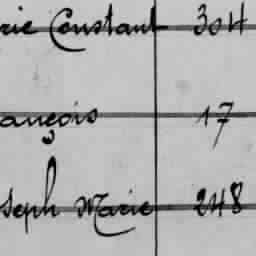 rie Constant 304
ançois 17
seph Marie 248